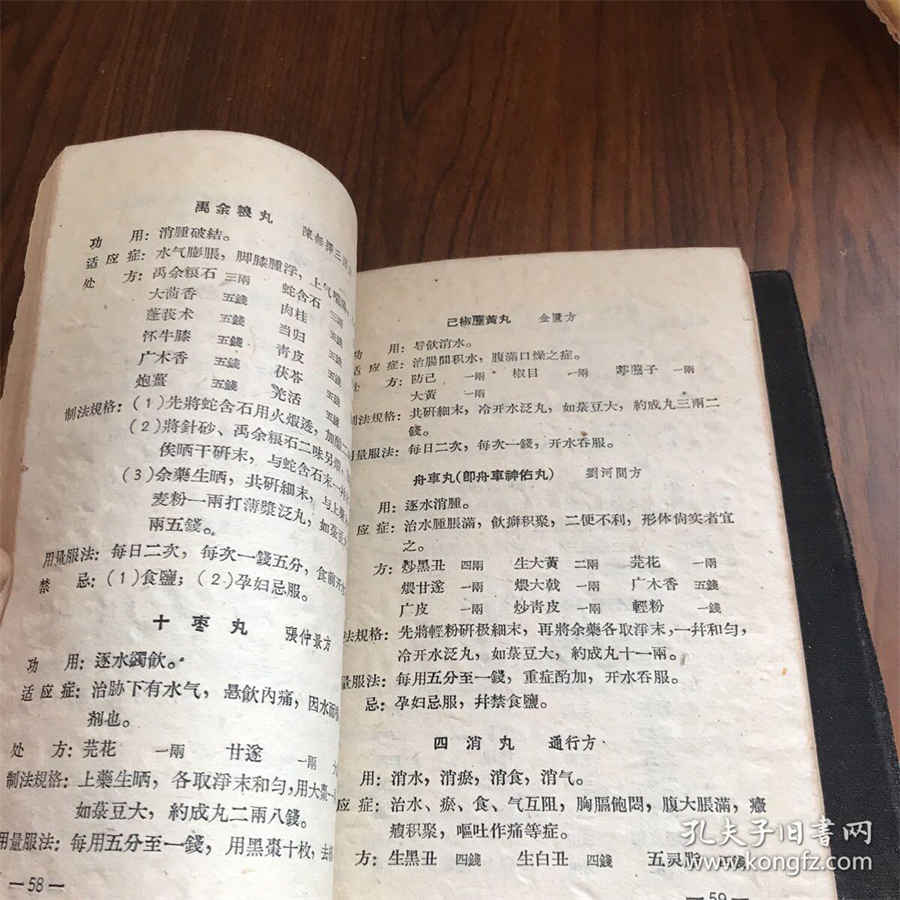 禹余粮丸
功 用：消腫破結。
适应症：水气膨脹，脚膝腫浮，上气喘
处 方：禹余粮石 三兩 蛇含石
大茴香 五錢 肉桂
蓬莪朮 五錢 当归
怀牛膝 五錢 青皮
广木香 五錢 茯苓
炮薑 五錢 羌活
制法規格：(1)先將蛇含石用火煆透，加醋
(2)將針砂、禹余粮石二味另
俟晒干研末，与蛇含石末一
(3)余藥生晒，共研細末，与上
麦粉一兩打薄漿泛丸，如菉豆
兩五錢。
用量服法：每日二次，每次一錢五分，食前开
禁 忌：(1)食鹽；(2)孕妇忌服。
十枣丸 張仲景方
功 用：逐水蠲飲。
适应症：治胁下有水气，悬飲內痛，因水
剂也。
处 方：芫花 一兩 甘遂 一兩
制法規格：上藥生晒，各取淨末和匀，用大棗一
如菉豆大，約成丸二兩八錢。
用量服法：每用五分至一錢，用黑棗十枚，去
—58—
己椒藶黃丸 金匱方
功 用：导飲消水。
适应症：治腸間积水，腹滿口燥之症。
处 方：防己 一兩 椒目 一兩 葶藶子 一兩
大黃 一兩
制法規格：共研細末，冷开水泛丸，如菉豆大，約成丸三兩二
錢。
用量服法：每日二次，每次一錢，开水吞服。
舟車丸(卽舟車神佑丸) 劉河間方
用：逐水消腫。
应症：治水腫脹滿，飲癖积聚，二便不利，形体倘实者宜
之。
方：炒黑丑 四兩 生大黃 二兩 芫花 一兩
煨甘遂 一兩 煨大戟 一兩 广木香 五錢
广皮 一兩 炒青皮 一兩 輕粉 一錢
法規格：先將輕粉研极細末，再將余藥各取淨末，一幷和匀，
冷开水泛丸，如菉豆大，約成丸十一兩。
量服法：每用五分至一錢，重症酌加，开水吞服。
忌：孕妇忌服，幷禁食鹽。
四消丸 通行方
用：消水，消瘀，消食，消气。
应症：治水、瘀、食、气互阻，胸膈飽悶，腹大脹滿，癥
瘕积聚，嘔吐作痛等症。
方：生黑丑 四錢 生白丑 四錢 五灵脂 四錢
—59—
孔夫子旧书网
www.kongfz.com